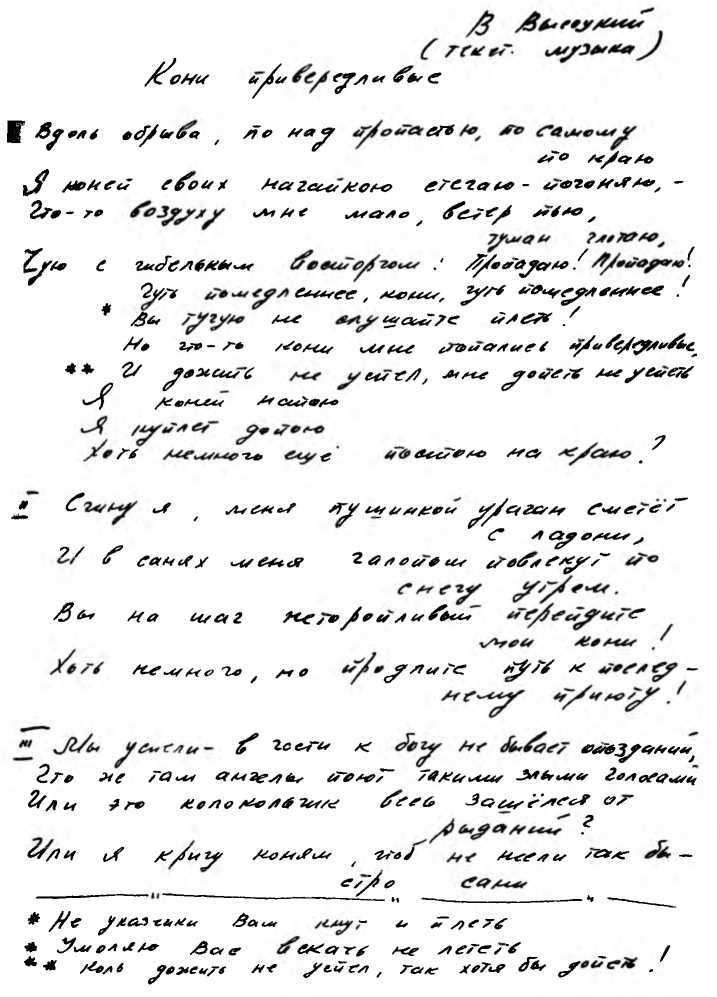 В Высоцкий
(текст. музыка)
Кони привередливые
I Вдоль обрыва, по над пропастью, по самому
по краю
Я коней своих нагайкою стегаю - погоняю, -
Что-то воздуху мне мало, ветер пью,
туман глотаю,
Чую с гибельным восторгом: Пропадаю! Пропадаю!
Чуть помедленнее, кони, чуть помедленнее!
* Вы тугую не слушайте плеть!
Но что-то кони мне попались привередливые,
** И дожить не успел, мне допеть не успеть
Я коней напою
Я куплет допою
Хоть немного ещё постою на краю?
II Сгину я, меня пушинкой ураган сметёт
с ладони,
И в санях меня галопом повлекут по
снегу утром.
Вы на шаг неторопливый перейдите
мои кони!
Хоть немного, но продлите путь к послед-
нему приюту!
III Мы успели - в гости к богу не бывает опозданий,
Что же там ангелы поют такими злыми голосами
Или это колокольчик весь зашёлся от
рыданий?
Или я кричу коням, чтоб не несли так бы-
стро сани
* Не указчики Вам кнут и плеть
* Умоляю Вас вскачь не лететь
** Коль дожить не успел, так хотя бы допеть!